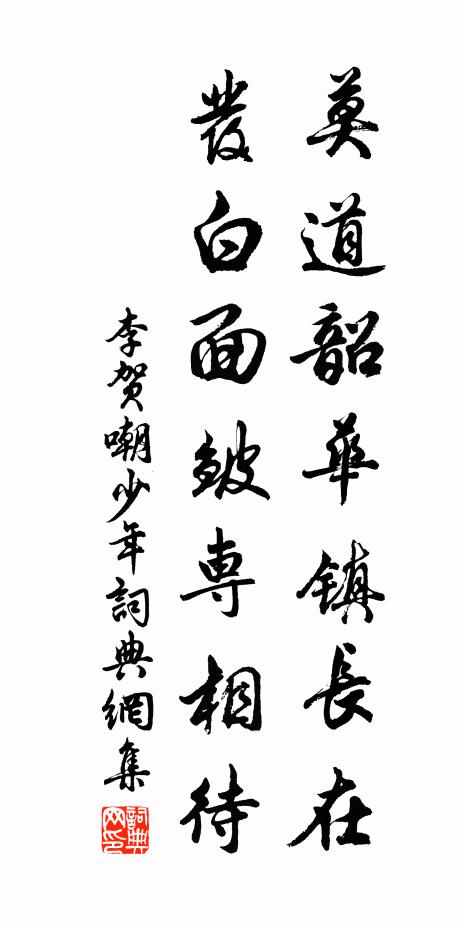 莫道韶華鎮長在
發白面皺専相待
李賀嘲少年詞典網集
詞典
网印